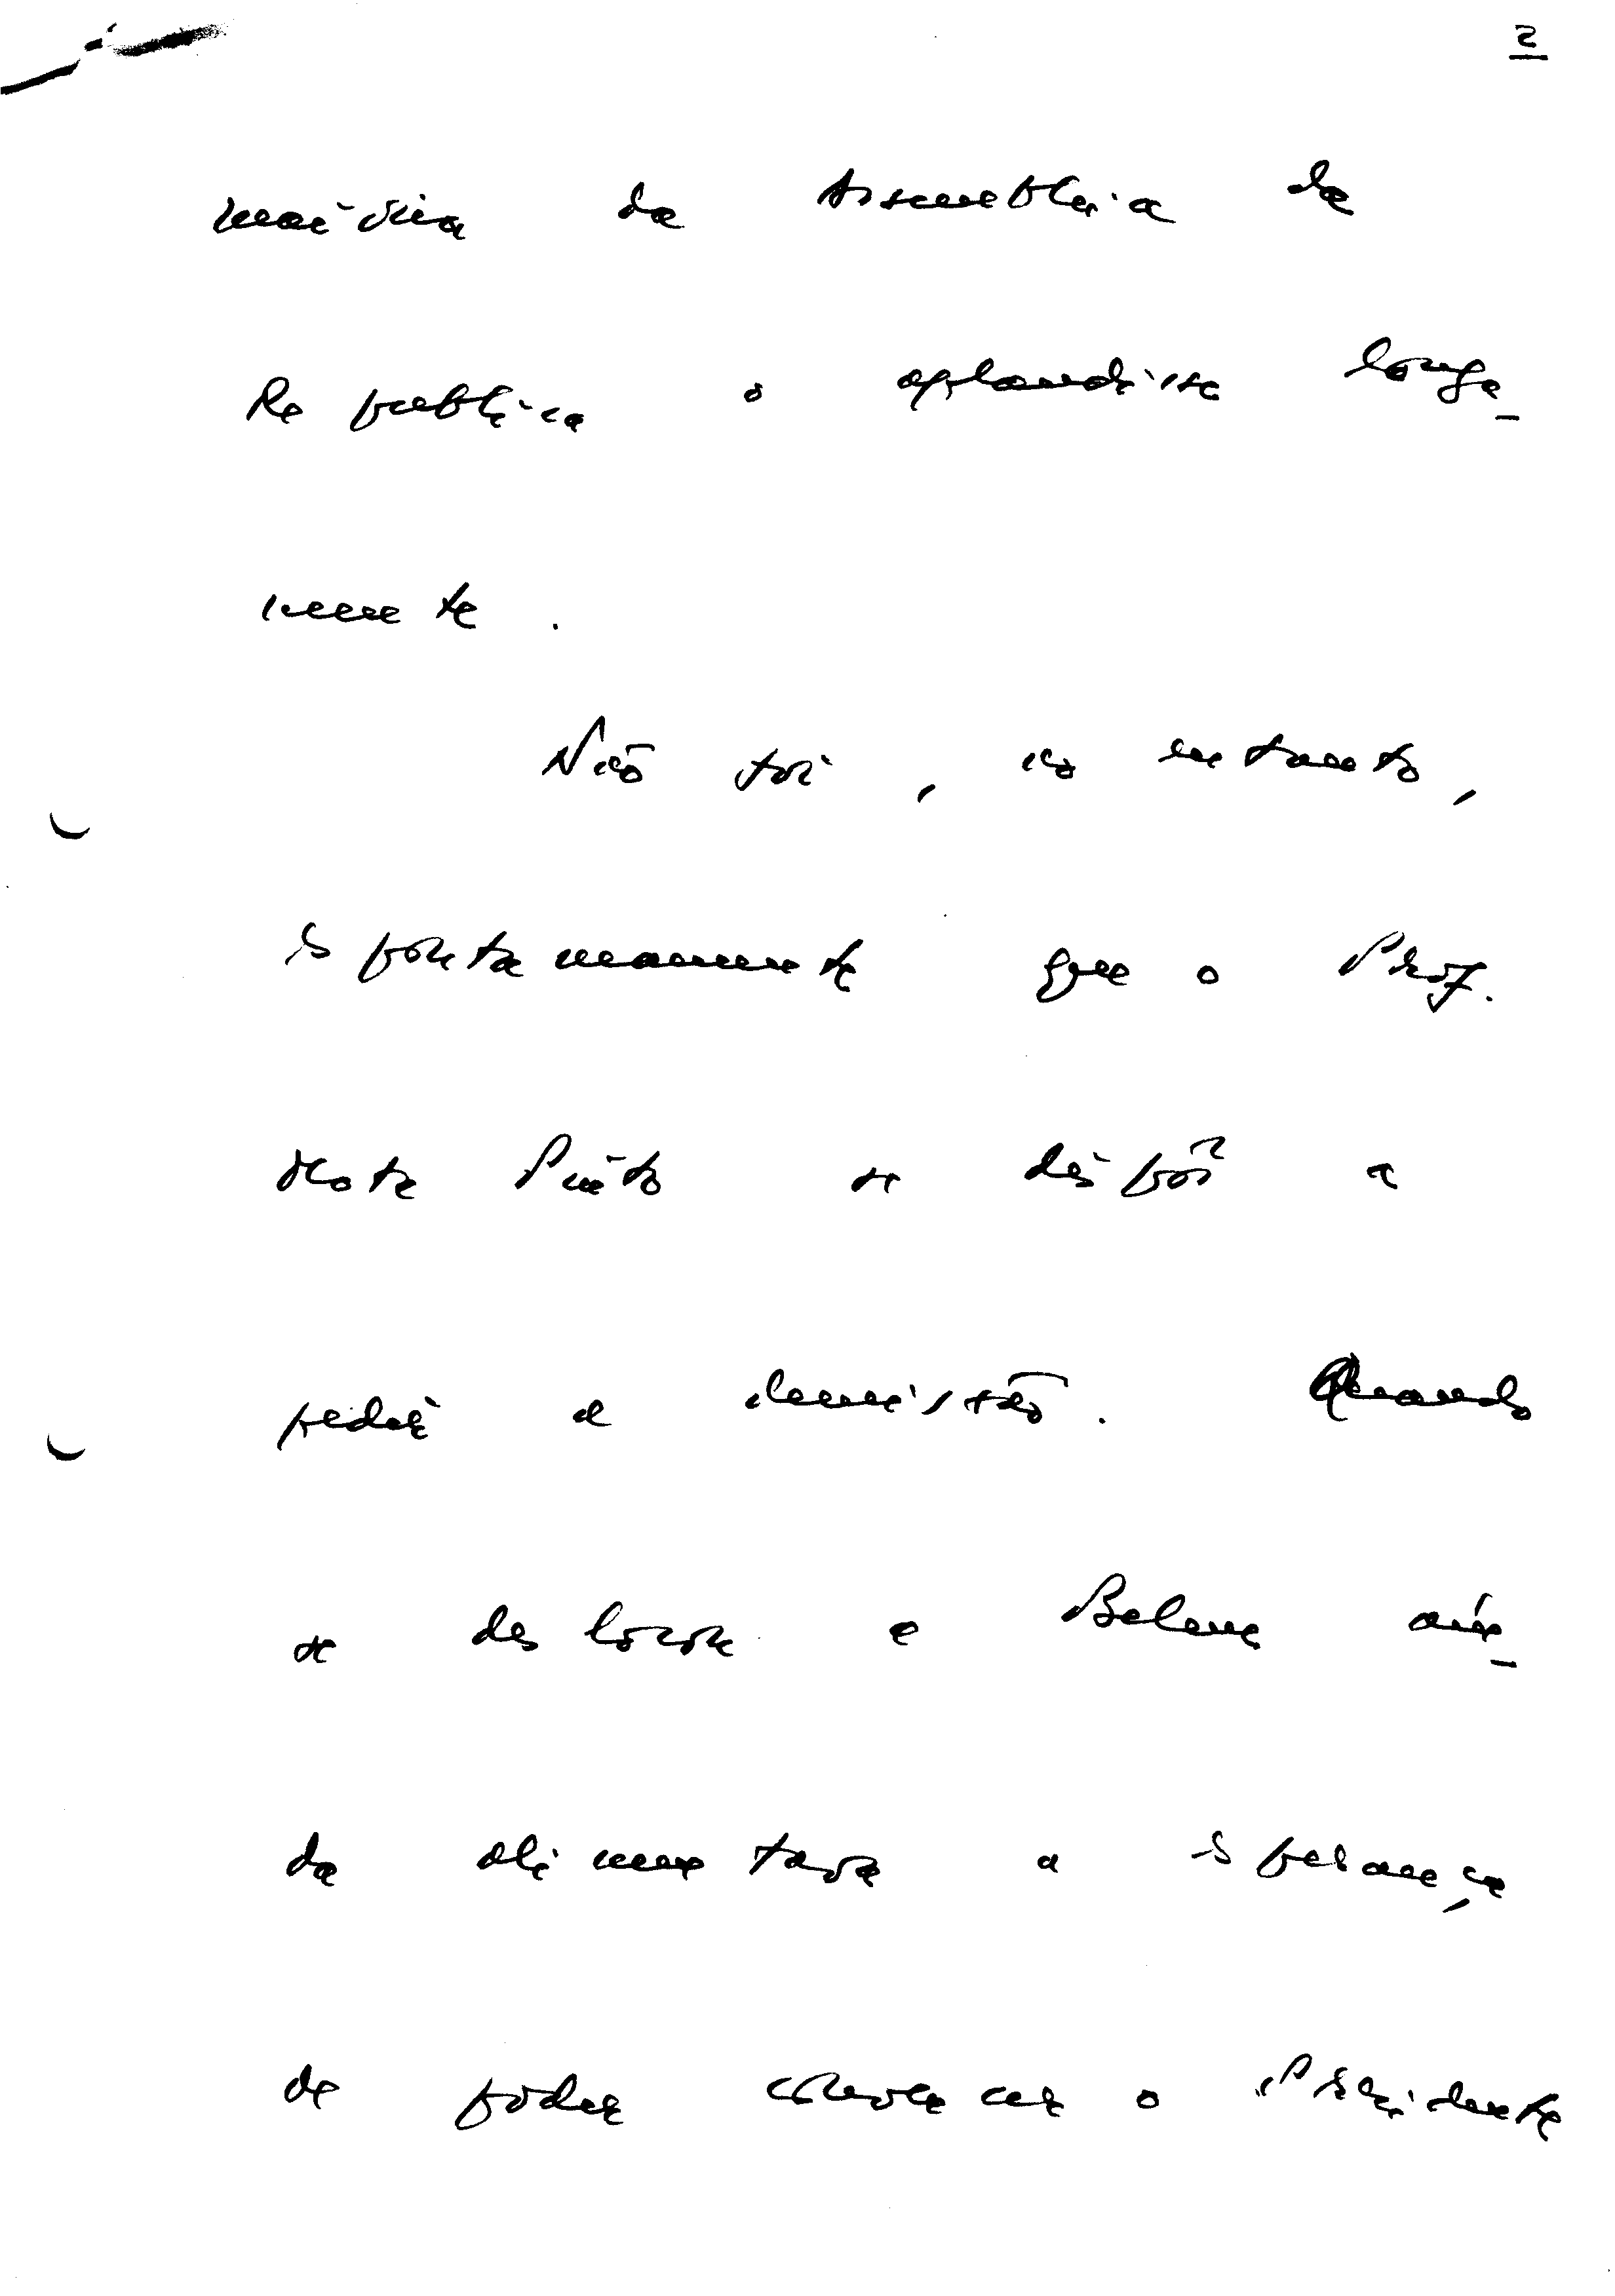 2
maioria da Assembleia da
Republica o aplaudisse longa-
mente.
Não foi, no entanto,
espontaneamente que o Prof.
Mota Pinto se dispôs a
pedir a demissão. Quando
se deslocou a Belem ain-
da alimentava a esperança
de poder convencer o Presidente